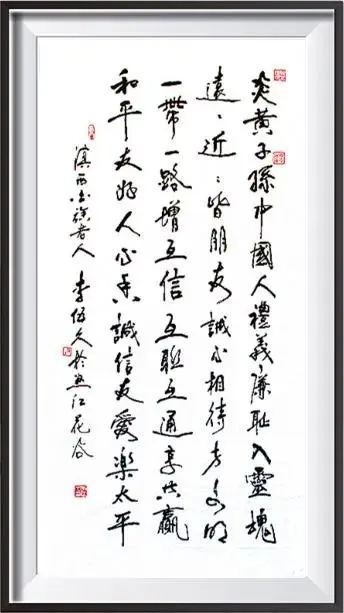 炎黃子孫中國人禮義廉耻入靈魂
遠〻近〻皆朋友誠心相待文明
一帶一路增互信互聯互通享共贏
和平友好人心誠信友愛樂太平
滇西人 李久於江花谷